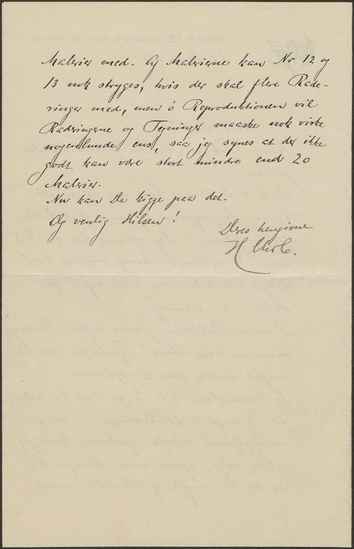 Malerier med. Af Malerierne kan No 12 og
13 nok stryges, hvis der skal flere Rade-
ringer med, men i Reproduktionen vil
Raderingerne og Tegninger maaske nok virke
nogenlunde ens, saa jeg synes at der ikke
godt kan være stort mindre end 20
Malerier.
Nu kan De ligge paa det.
Og venlig Hilsen!
Deres hengivne
H